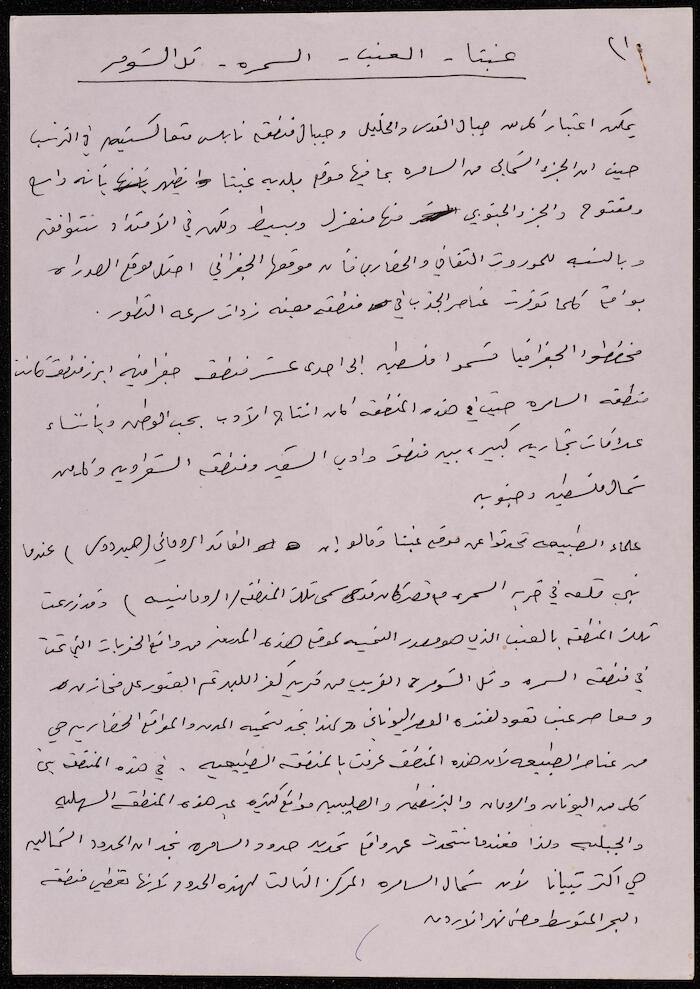 ٢١
عنبتا - العنب - السمره - تل الشومر
يمكن اعتبار كل من جبال القدس والخليل وجبال منطقة نابلس متعاكسيتين في الترتيب
حيث ان الجزء الشمالي من السامره بما فيها موقع بلدية عنبتا يظهر بأنه واسع
ومفتوح والجزء الجنوبي منها منعزل وبسيط ولكن في الامتداد تتوافق
وبالنسبه للموروث الثقافي والحضاري فان موقعها الجغرافي احتل موقع الصداره
بواقع كلما توفرت عناصر الجذب في منطقه معينه زادت سرعه التطور .
مخططوا الجغرافيا قسموا فلسطين الى احدى عشر منطقه جغرافيه ابرز منطقه كانت
منطقه السامره حيث في هذه المنطقه كان انتاج الأدب بحب الوطن وبإنشاء
علاقات تجاريه كبيره بين منطقة وادي الشعير ومنطقه الشعراويه وكل من
شمال فلسطين وجنوبه
علماء الطبيعه تحدثوا عن موقع عنبتا وقالوا ان القائد الروماني (هيردوس) عندما
بنى قلعه في خربه السمره مع قصر كان قد سمى تلك المنطقه (الرومانيه) وقد زرعت
تلك المنطقه بالعنب الذي هو مصدر التسميه لموقع هذه المدينه من واقع الحفريات التي تمت
في منطقه السمره وتل الشومر القريب من قرية كفر اللبد تم العثور على مخازن
ومعاصر عنب تعود لفتره العصر اليوناني ولهذا نجد تسميه المدن والمواقع الحضاريه هي
من عناصر الطبيعه لأن هذه المنطقه عرفت بالمنطقه الطبيعيه . في هذه المنطقه بنى
كل من اليونان والرومان والبيزنطيين والصليبيه مواقع كثيره عبر هذه المنطقه السهليه
والجبليه ولذا فعندما نتحدث عن واقع تحديد حدود السامره نجد ان الحدود الشماليه
هي اكثر تبيانا لأن شمال السامره المركز الثالث لهذه الحدود لأنها تغطي منطقه
البحر المتوسط وحتى نهر الاردن